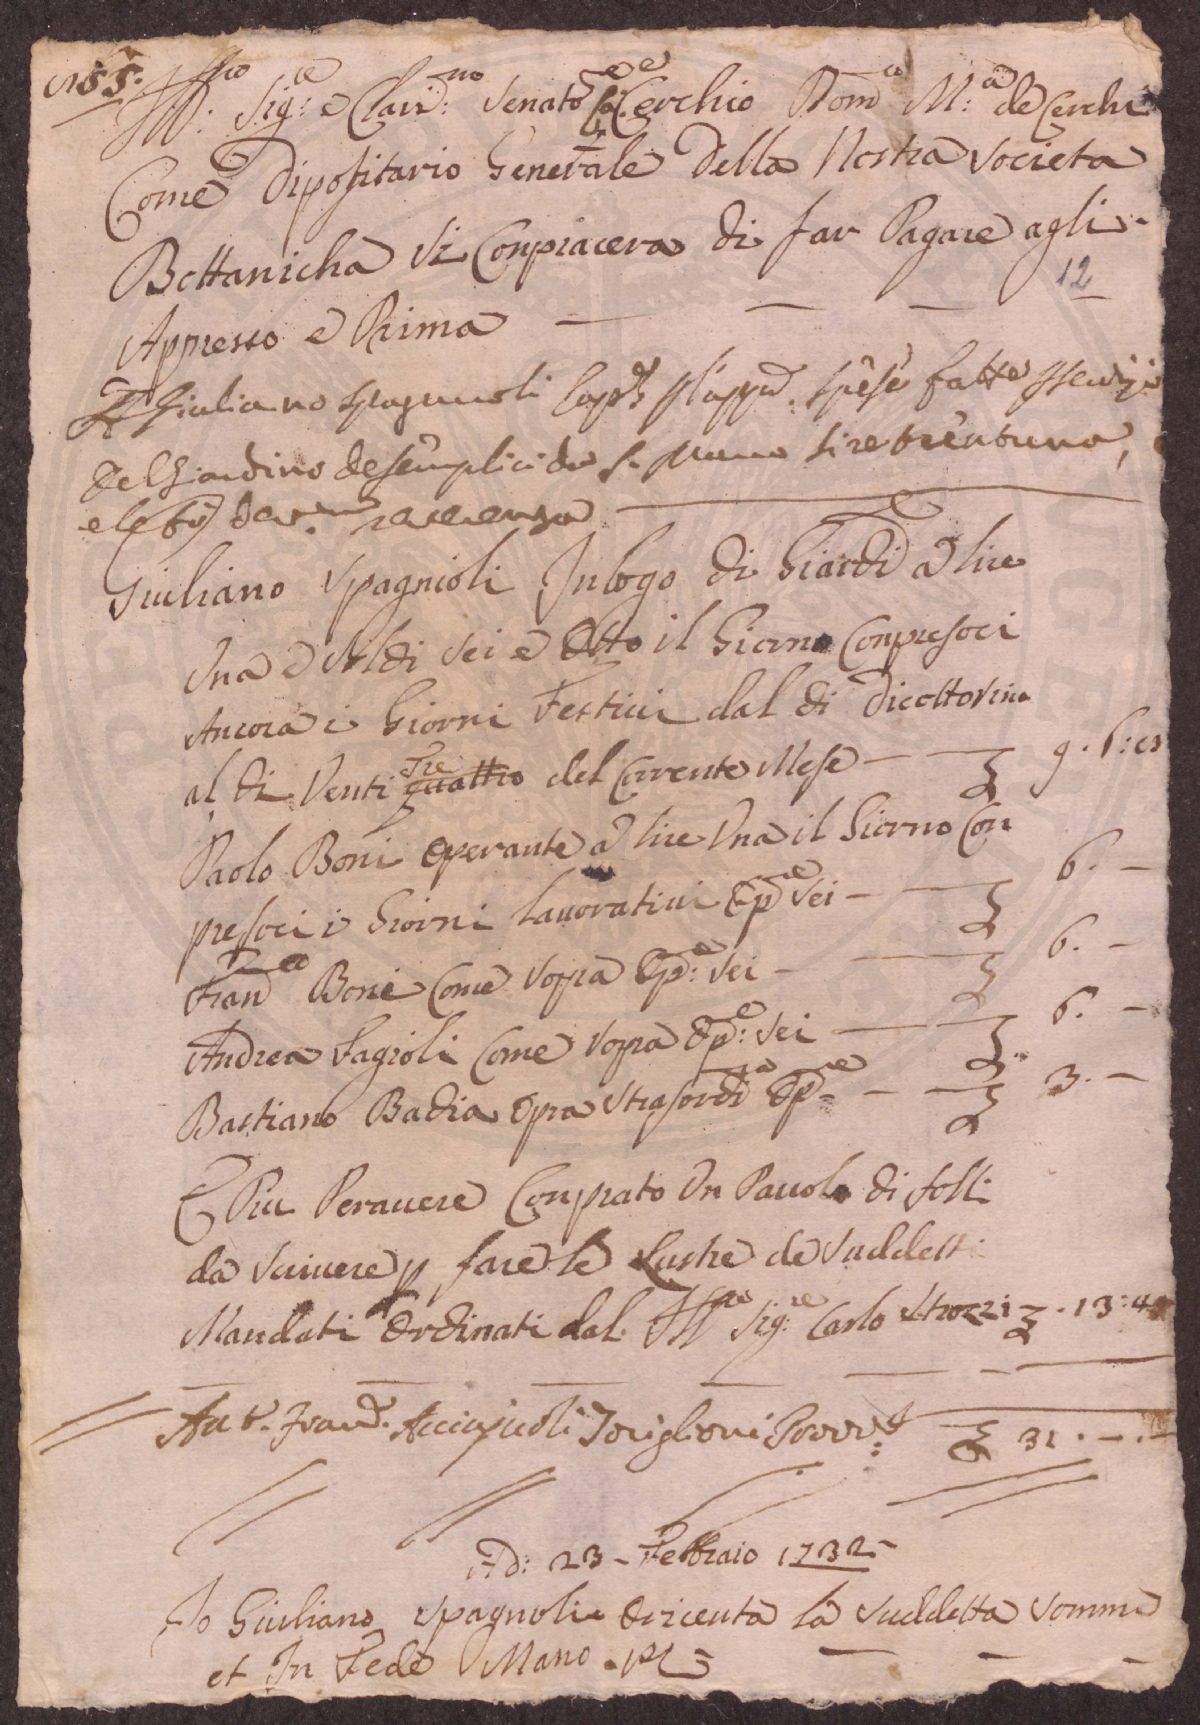 155.
Ill.mo Sig.re e Clar.mo Senato.re Cerchio Rom.o M.a de Cerchi
Come Dipositario Generale Della Nostra Societa
Bottanicha Si Conpiacera di far Pagare agli
12
Appresso e Prima
Giuliano Spagnuoli spese fatte
del Giardino de semplici da lire trentuna,
e riceuuta
Giuliano Spagnioli In logo di Giard.e a lire
Una e Soldi Sei e Otto il Giorno Conpresoci
Ancora i Giorni Festiui dal di Diciottosino
al di Venti Tre quattro del Corrente Mese — 9. 6: 8
Paolo Boni Operante a lire Una il Giorno Con
presoci i Giorni Lauoratiui Op.re Sei — 6. —
Fran.co Boni Come Sopra Op.e Sei — 6. —
Andrea Fagioli Come Sopra Op.e Sei — 6. —
Bastiano Badia Opra Strasord.ia Op.re — 3. —
E Piu Per auere Conprato Un Pauolo di folli
da Scriuere p fare le Lustre de Suddetti
Mandati Ordinati dal Ill.mo Sig.re Carlo Strozzi . 13: 4
Ant. Franc. Acciajuoli Toriglioni Provv.e 31. — . —
A Di: 23 - Febbraio 1732 -
Io Giuliano Spagnoli o riceuta la Suddetta Somma
et In Fede Mano . P.